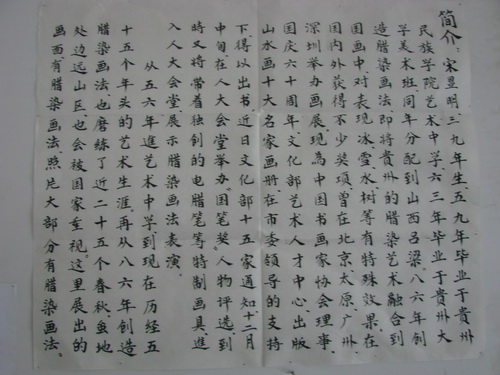 简介：宋昱明，三九年生，五九年毕业于貴州
民族学院艺术中学，六三年毕业于貴州大
学美术班，同年分配到山西吕梁。八六年创
造腊染画法，即将貴州的腊染艺术融合到
国画中，对表现冰、雪、水、树等有特殊效果，在
国内外获得不少奖項。曾在北京、太原、广州、
深圳举办画展，現為中国书画家协会理事，
国庆六十周年，文化部艺术人才中心出版
山水画六十大名家画册，在市委领导的支持
下得以出书。近日文化部十五家通知，十二月
中旬在人大会堂举办国笔奖人物评选，到
時又将带着独创的电腊笔等特制画具，進
入人大会堂，展示腊染画法表演。
从五六年進艺术中学到現在历经五
十五个年头的艺术生涯。再从八六年创造
腊染画法也磨练了近二十五个春秋，虽地
处边远山区，也会被国家重视。这里展出的
画，西有腊染画法，照片大部分有腊染画法。